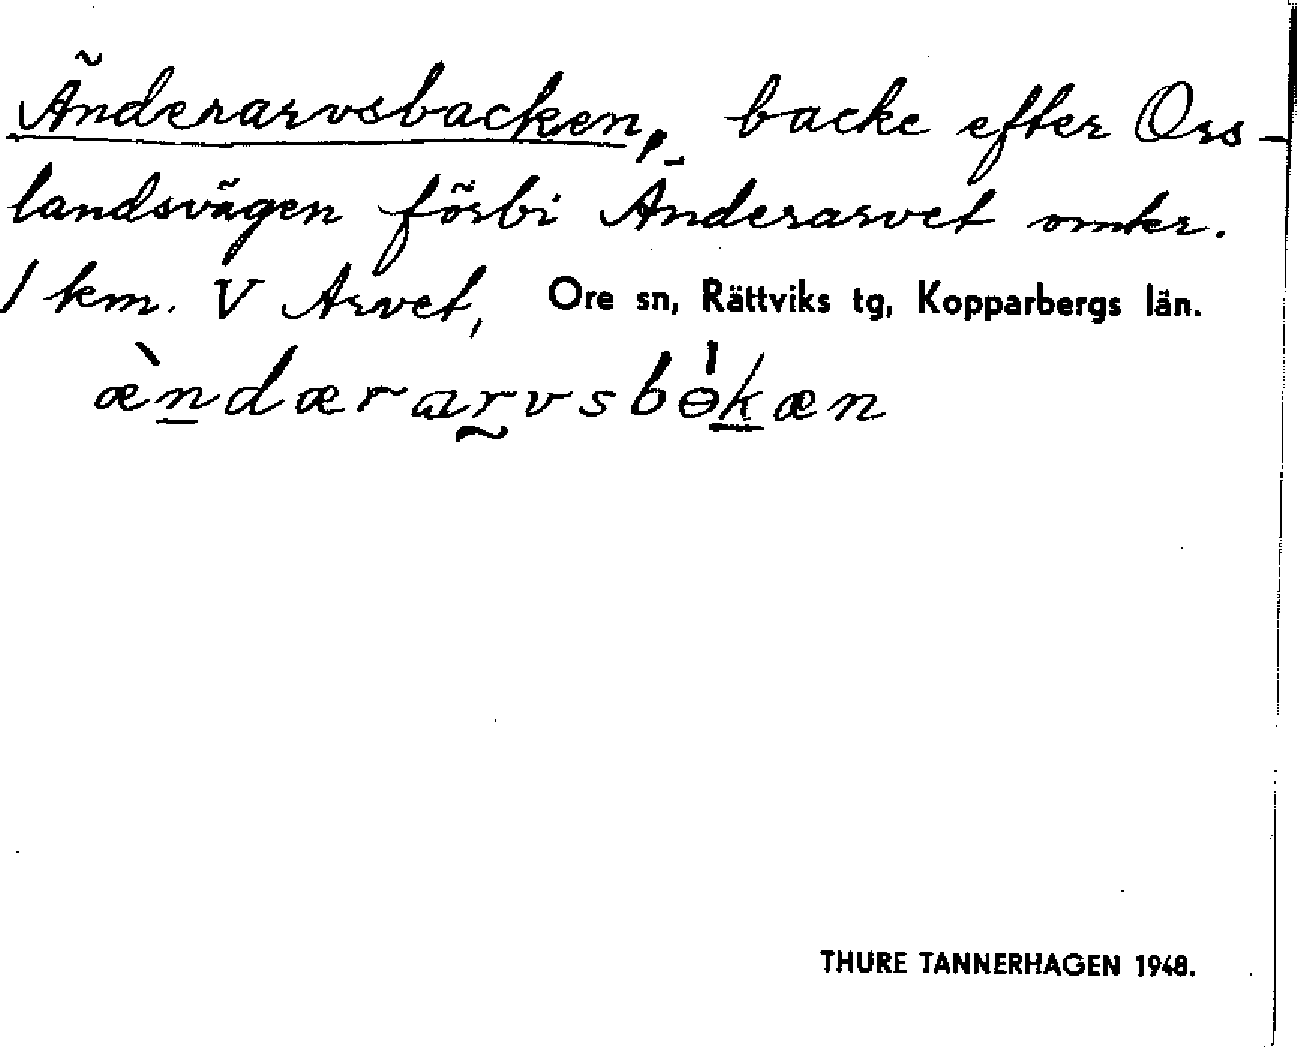 Änderarvsbacken, backe efter Oss-
landsvägen förbi Änderarvet omkr.
1 km. V Arvet, Ore sn, Rättviks tg, Kopparbergs län.
æ̀ndærarvsbɵ̍kæn
THURE TANNERHAGEN 1948.